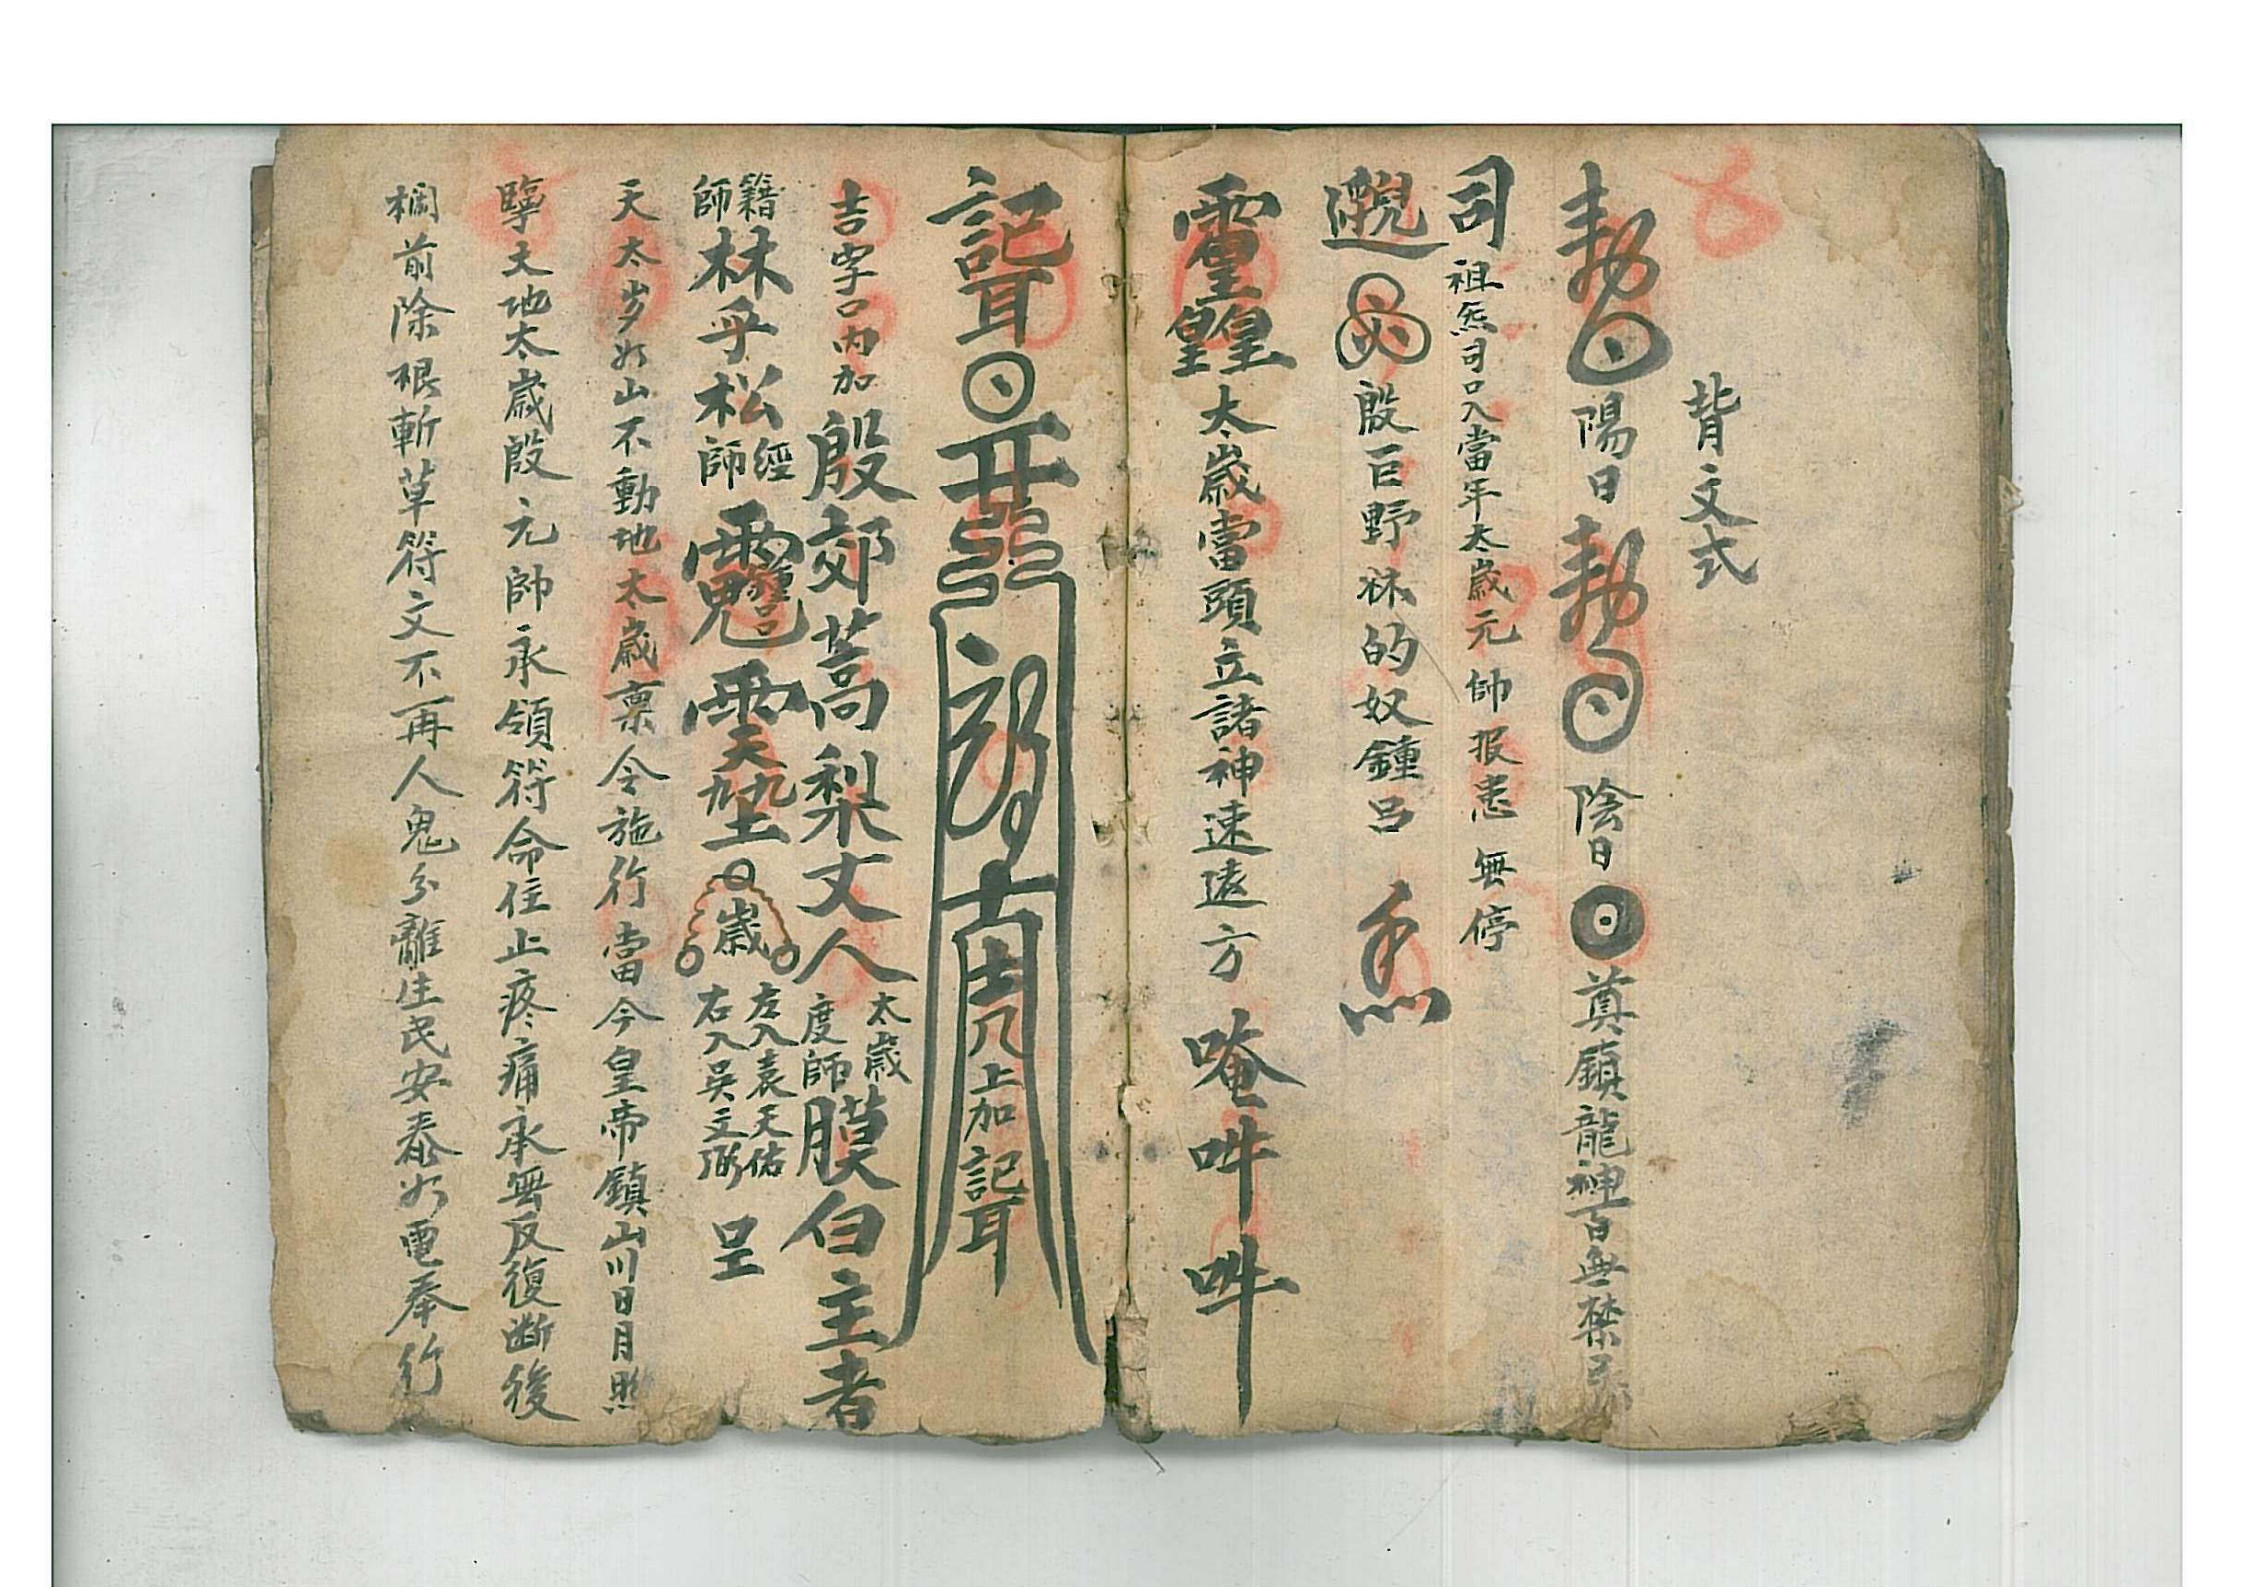 背文式
勅 陽日 勅 陰日 奠鎮龍神百無禁忌
司 祖炁司口入當年太歲元帥报恙無停
殷巨野林的奴鍾呂
太歲當頭立諸神速遠方 唵吽吽
上加
吉字口内加 殷郊蒿梨丈人 太歲 度師 膜白主者
籍師 林乎松 經師 歲 左入袁天佑 右入吳立弼 呈
天太岁如山不動地太歲禀令施行當今皇帝鎮山川日月照
天地太歲殷元帥承領符命住止疼痛承無反復断後
前除根斬草符文不再人鬼分離生民安泰如電奉行